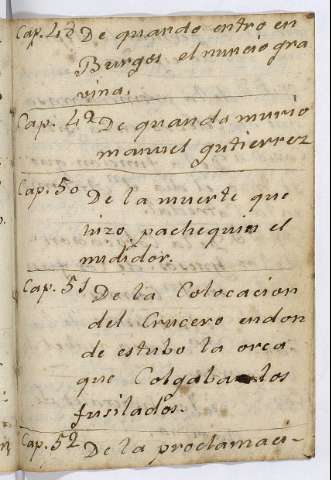 Cap. 48 De quando entro en
Burgos el nuncio gra
vina.
Cap. 49 De quando murio
manuel gutierrez
Cap. 50 De la muerte que
hizo pachequin el
mididor.
Cap. 51 De la Colocacion
del Crucero endon
de estubo la orca
que Colgaba los
fusilados.
Cap. 52 De la proclamaci-